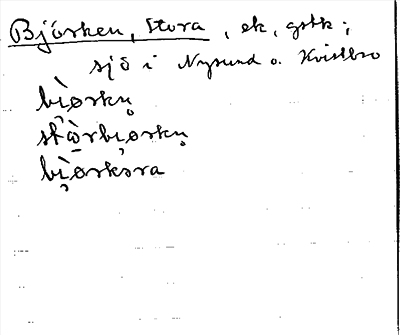 Björken, Stora, ek, gstk;
sjö i Nysund o. Kvistbro
bi̯ø̀rkn̥
stὼrbi̯ørkn̥
bi̯ø̀rkəra